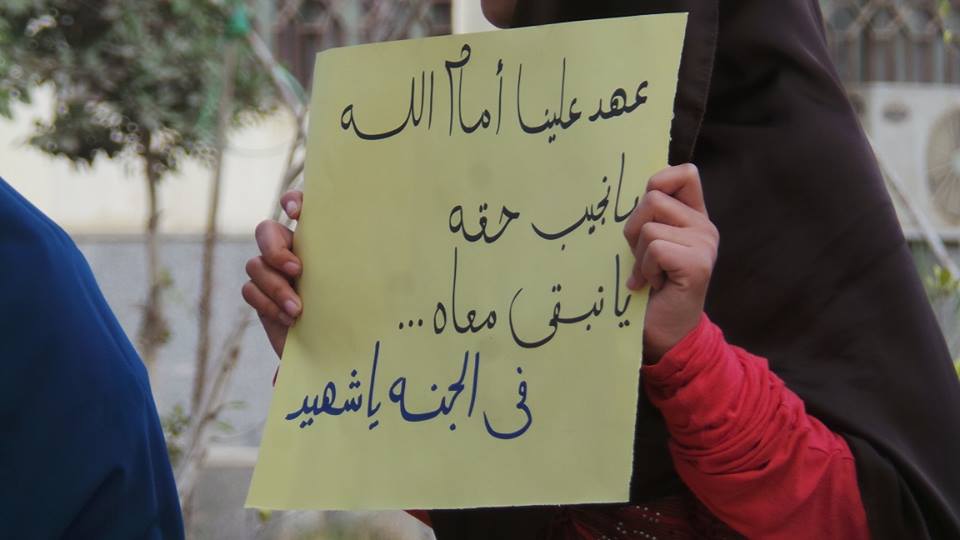 عهد علينا أمام الله
يا نجيب حقه
يا نبقى معاه ...
فى الجنه يا شهيد